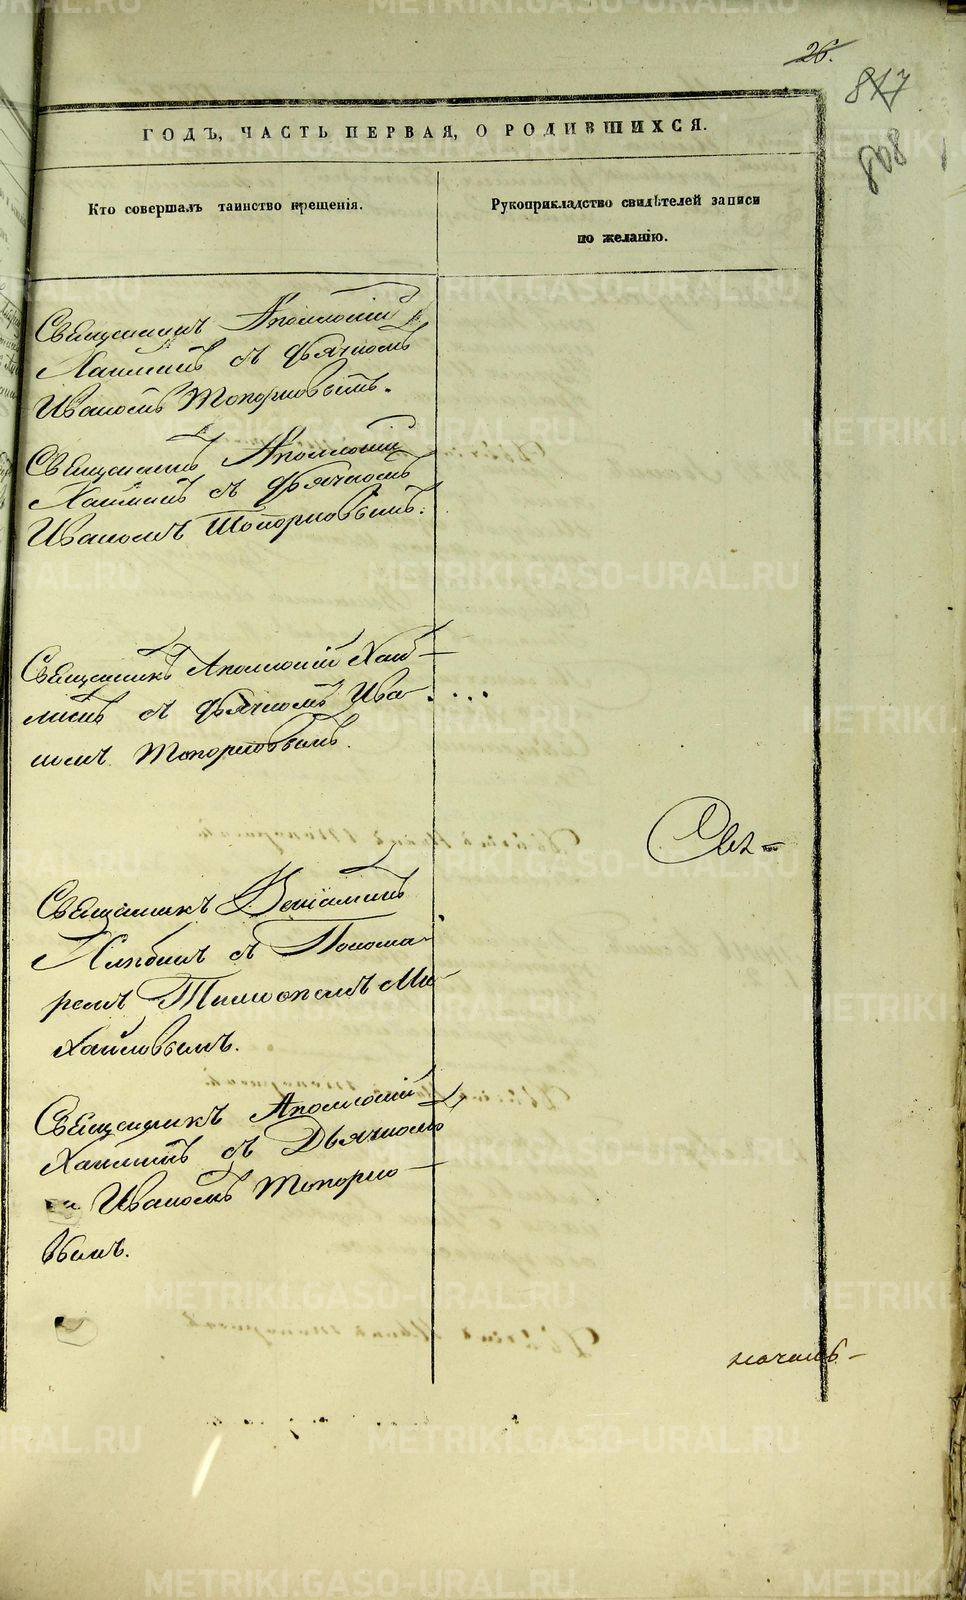 26.
817
808
ГОДЪ, ЧАСТЬ ПЕРВАЯ, О РОДИВШИХСЯ.
Кто совершалъ таинство крещенія.
Рукоприкладство свидѣтелей записи
по желанію.
Священникъ Аполлоній
Ханминъ съ дьячкомъ
Иваномъ Топорковымъ.
Священникъ Аполлоній
Ханминъ съ дьячкомъ
Иваномъ Топорковымъ.
Священникъ Аполлоній Хан-
минъ съ дьячкомъ Ива-
номъ Топорковымъ.
Свя-
Священникъ Веніаминъ
съ Понома-
ремъ Тимофеемъ Ми-
хайловымъ.
Священникъ Аполлоній
Ханминъ съ Дьячкомъ
Иваномъ Топорко-
вымъ.
METRIKI.GASO-URAL.RU